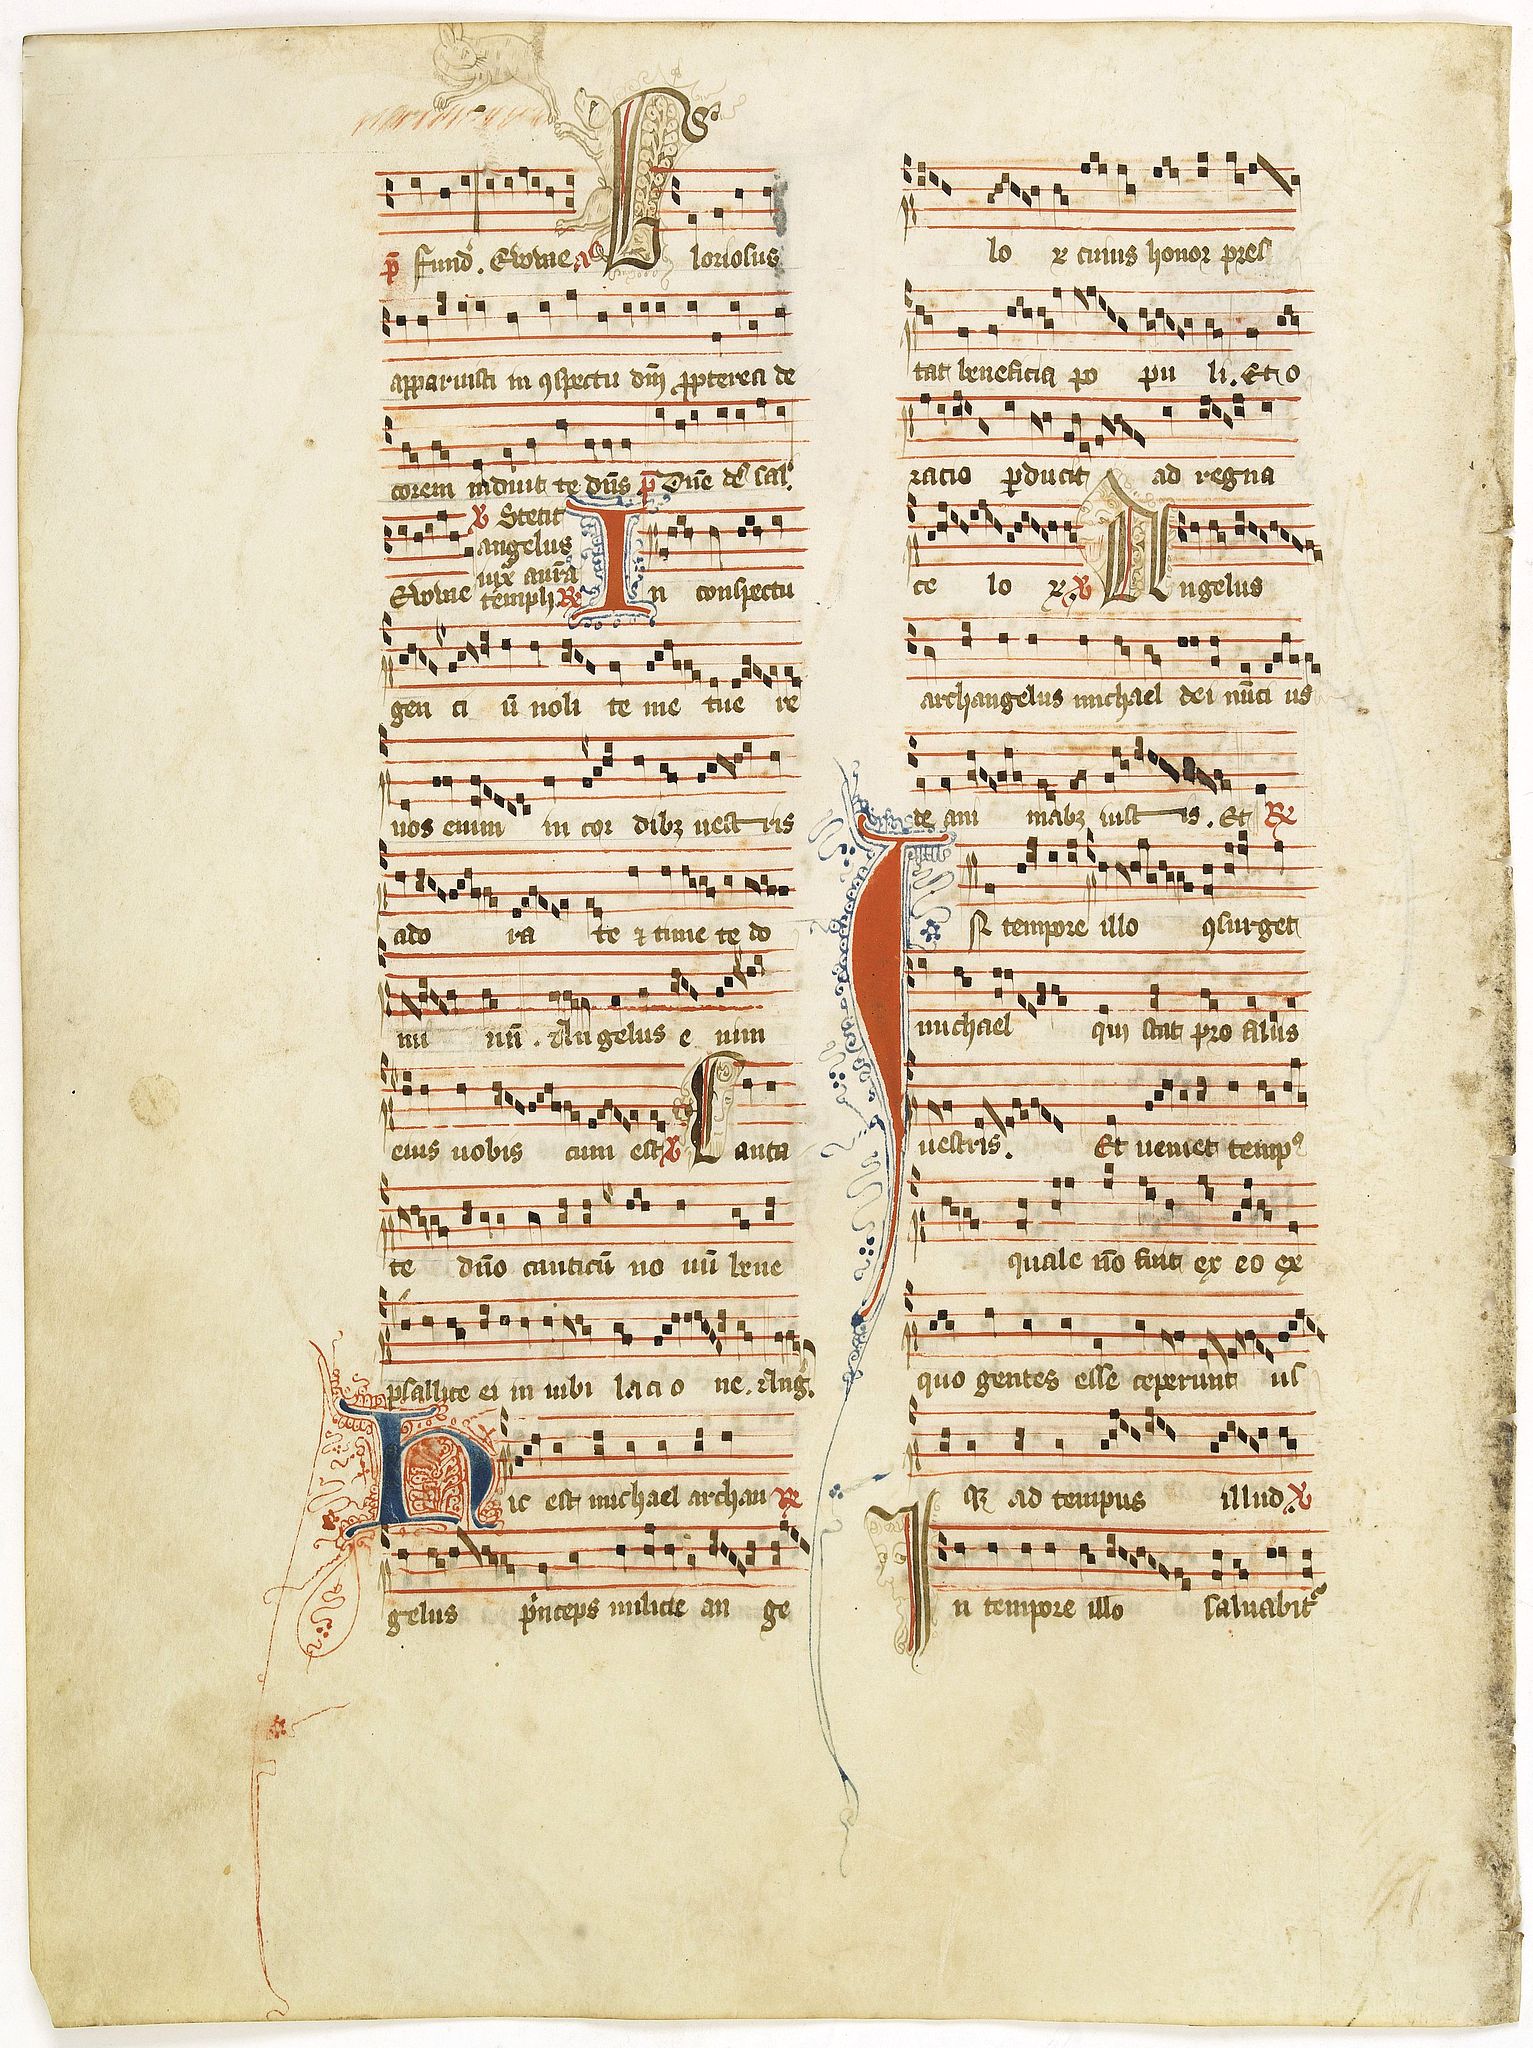 p̄ Fund᷒. Euouae a᷒ Gloriosus
apparuisti in ꝯspectu dn̄i ꝓpterea de
corem induit te dn̄s p̄ Dn̄e de᷒ sal᷒.
℣ Stetit
angelus
iux᷒ aurā
Euouae templi ℟ In conspectu
gen ci ū noli te me tue re
uos enim in cor dibꝫ uest ris
ado ra te ⁊ time te do
mi nū. Angelus e nim
eius uobis cum est ℣ Canta
te dn̄o canticū no uū bene
psallite ei in iubi lacio ne. Ang᷒.
Hic est michael archan ℟
gelus p̕nceps milicie an ge
lo ꝝ cuius honor pres
tat beneficia po pu li. Et o
racio ꝑducit ad regna
ce lo ꝝ. ℣ Angelus
archangelus michael dei nūci us
te ani mabꝫ iust is. Et ℟
IN tempore illo ꝯsurget
michael qui stat pro filiis
uestris. Et ueniet tempꝰ
quale nō fuit ex eo ex
quo gentes esse ceperunt us
Q ad tempus illud ℣
In tempore illo saluabit᷑